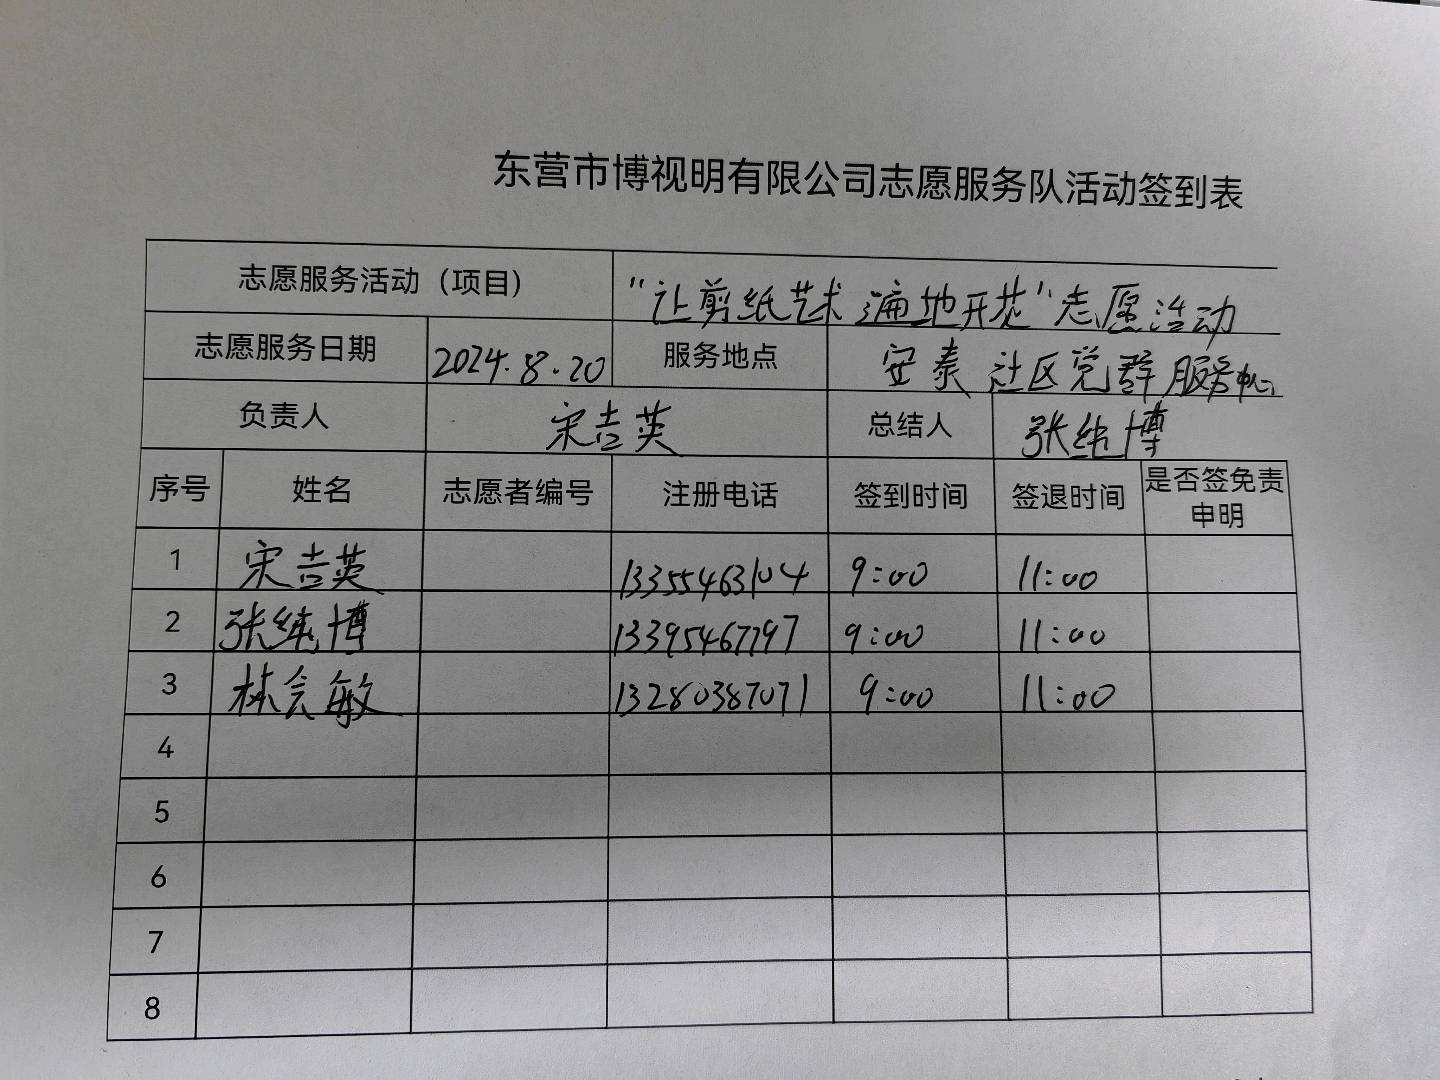 东营市博视明有限公司志愿服务队活动签到表
志愿服务活动（项目） “让剪纸艺术遍地开花”志愿活动
志愿服务日期 2024.8.20 服务地点 安泰社区党群服务中心
负责人 宋吉英 总结人 张纯博
序号 姓名 志愿者编号 注册电话 签到时间 签退时间 是否签免责申明
1 宋吉英 13355463104 9:00 11:00
2 张纯博 13395467797 9:00 11:00
3 林会敏 13280387071 9:00 11:00
4
5
6
7
8